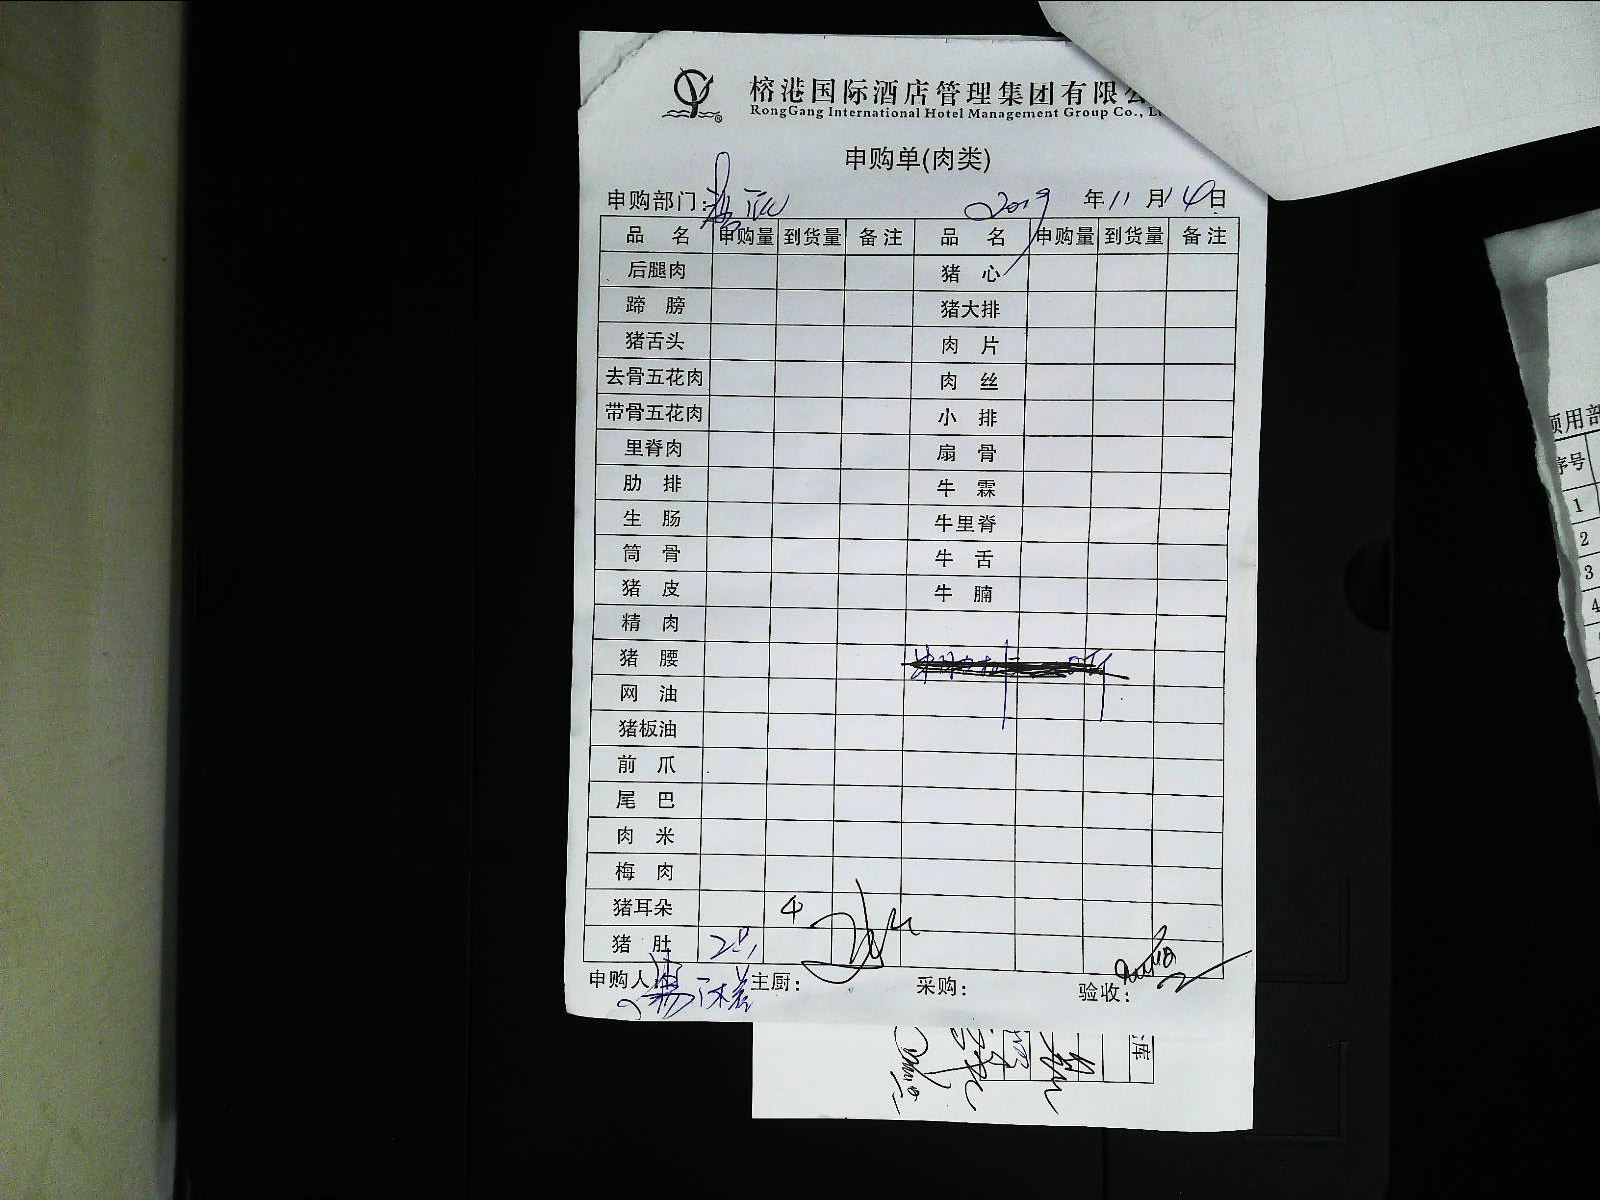 榕港国际酒店管理集团有限
RongGang International Hotel Management Group Co.,
申购单(肉类)
申购部门: 2019 年 11 月 14 日
品 名 申购量 到货量 备注 品 名 申购量 到货量 备注
后腿肉 猪 心
蹄 膀 猪大排
猪舌头 肉 片
去骨五花肉 肉 丝
带骨五花肉 小 排
里脊肉 扇 骨
肋 排 牛 霖
生 肠 牛里脊
筒 骨 牛 舌
猪 皮 牛 腩
精 肉
猪 腰
网 油
猪板油
前 爪
尾 巴
肉 米
梅 肉
猪耳朵 4
猪 肚
申购人: 主厨: 采购: 验收:
库
领用部
序号
1
2
3
4